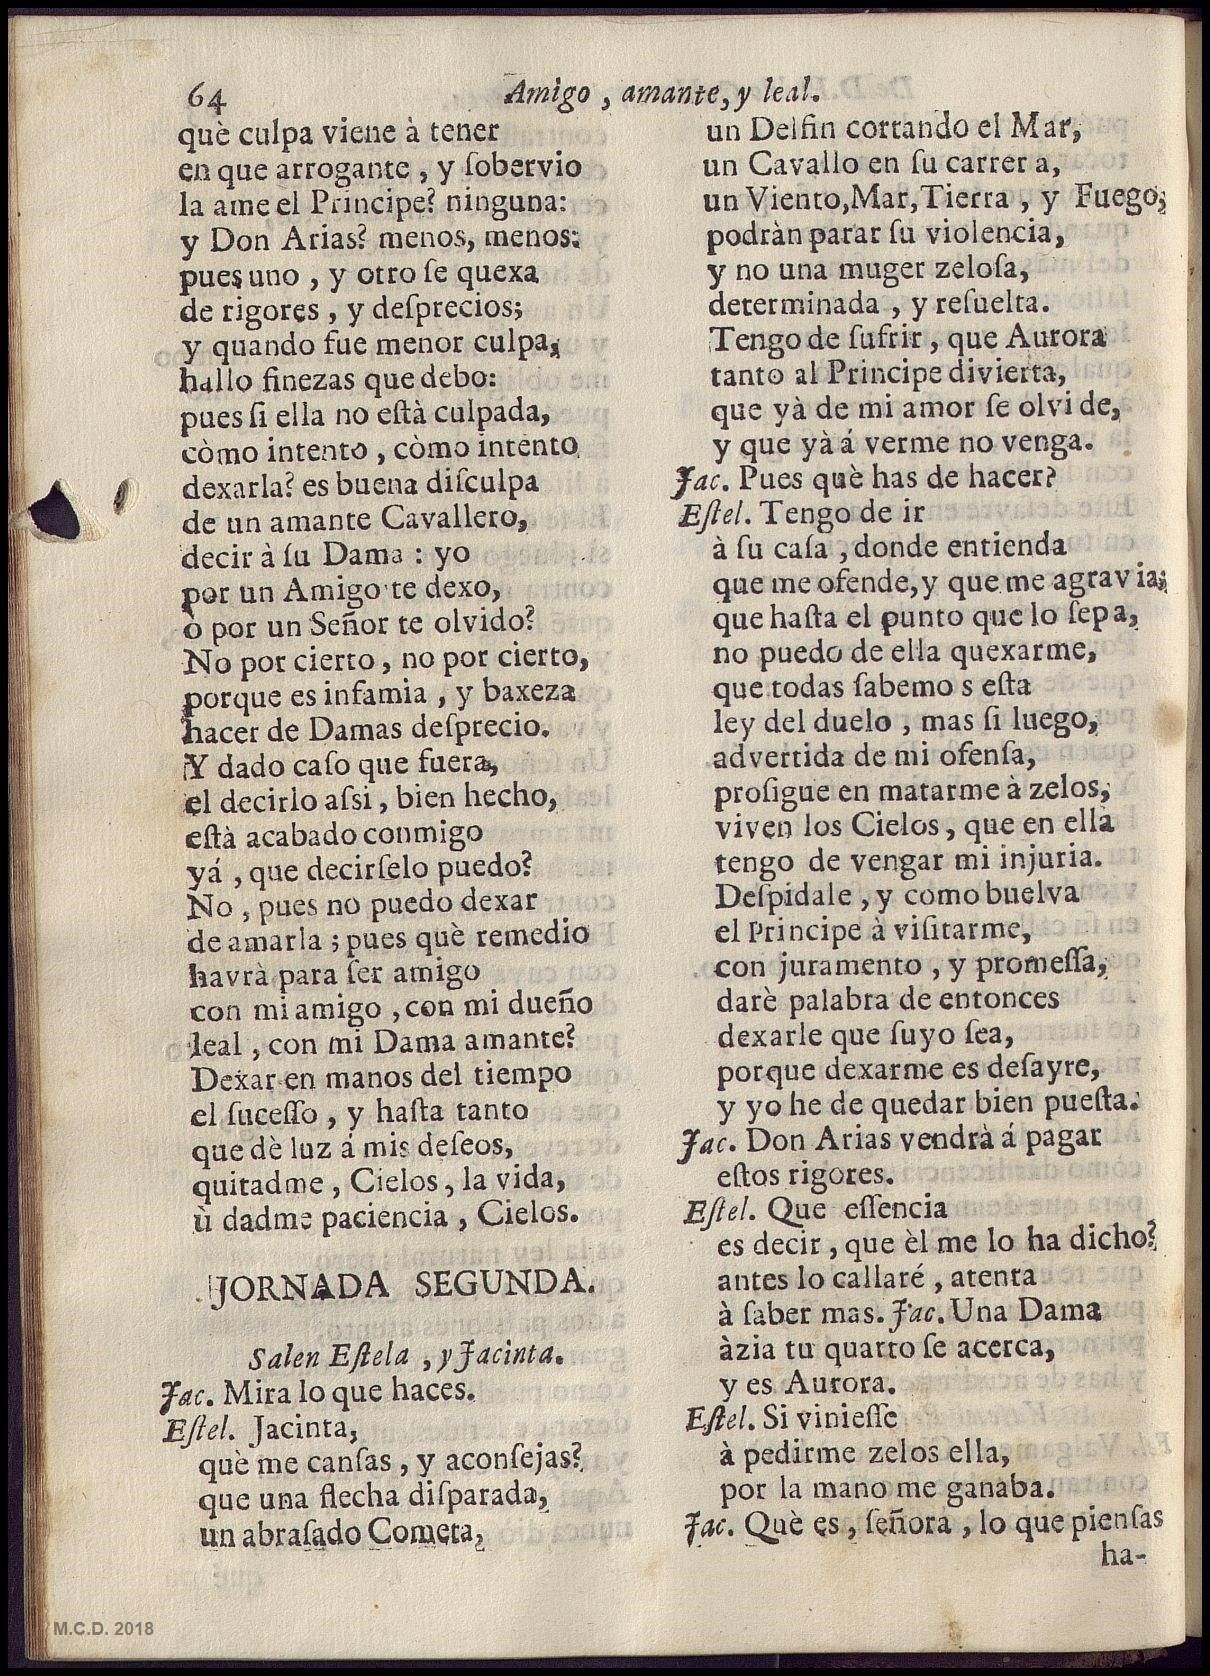 64
Amigo, amante, y leal.
què culpa viene à tener
en que arrogante, y ſobervio
la ame el Principe? ninguna:
y Don Arias? menos, menos:
pues uno, y otro ſe quexa
de rigores, y deſprecios;
y quando fue menor culpa,
hallo finezas que debo:
pues ſi ella no eſtà culpada,
còmo intento, còmo intento
dexarla? es buena diſculpa
de un amante Cavallero,
decir à ſu Dama: yo
por un Amigo te dexo,
ò por un Señor te olvido?
No por cierto, no por cierto,
porque es infamia, y baxeza
hacer de Damas deſprecio.
Y dado caſo que fuera,
el decirlo aſsi, bien hecho,
eſtà acabado conmigo
yá, que decirſelo puedo?
No, pues no puedo dexar
de amarla; pues què remedio
havrà para ſer amigo
con mi amigo, con mi dueño
leal, con mi Dama amante?
Dexar en manos del tiempo
el ſuceſſo, y haſta tanto
que dè luz á mis deſeos,
quitadme, Cielos, la vida,
ù dadme paciencia, Cielos.
JORNADA SEGUNDA.
Salen Eſtela, y Jacinta.
Jac. Mira lo que haces.
Eſtel. Jacinta,
què me canſas, y aconſejas?
que una flecha diſparada,
un abraſado Cometa,
un Delfin cortando el Mar,
un Cavallo en ſu carrera,
un Viento, Mar, Tierra, y Fuego,
podràn parar ſu violencia,
y no una muger zeloſa,
determinada, y reſuelta.
Tengo de ſufrir, que Aurora
tanto al Principe divierta,
que yà de mi amor ſe olvide,
y que yà á verme no venga.
Jac. Pues què has de hacer?
Eſtel. Tengo de ir
à ſu caſa, donde entienda
que me ofende, y que me agravia;
que haſta el punto que lo ſepa,
no puedo de ella quexarme,
que todas ſabemos eſta
ley del duelo, mas ſi luego,
advertida de mi ofenſa,
proſigue en matarme á zelos,
viven los Cielos, que en ella
tengo de vengar mi injuria.
Deſpidale, y como buelva
el Principe à viſitarme,
con juramento, y promeſſa,
darè palabra de entonces
dexarle que ſuyo ſea,
porque dexarme es deſayre,
y yo he de quedar bien pueſta.
Jac. Don Arias vendrà á pagar
eſtos rigores.
Eſtel. Que eſſencia
es decir, que èl me lo ha dicho?
antes lo callaré, atenta
à ſaber mas. Jac. Una Dama
àzia tu quarto ſe acerca,
y es Aurora.
Eſtel. Si vinieſſe
à pedirme zelos ella,
por la mano me ganaba.
Jac. Què es, ſeñora, lo que pienſas
ha-
M.C.D. 2018